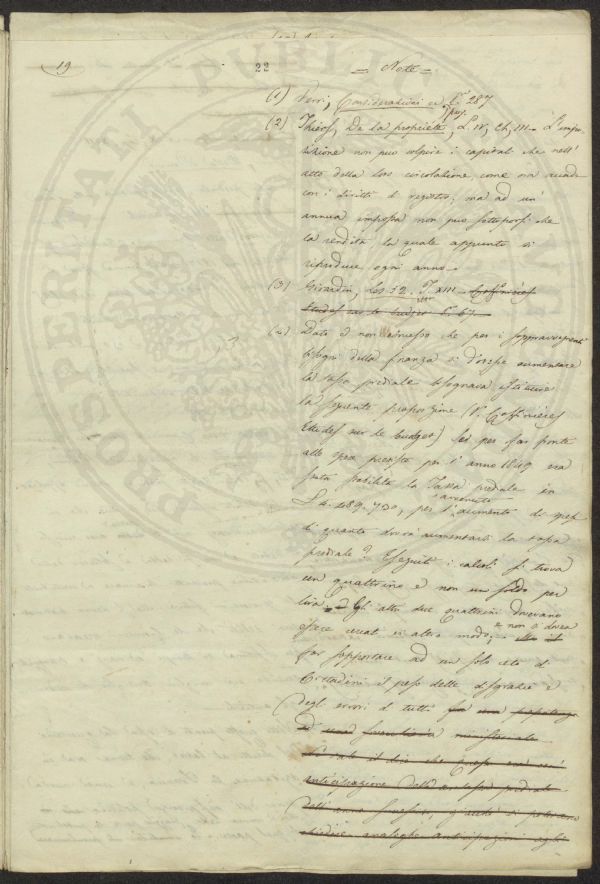 19 22 = Note =
(1) Ferri, Considerazioni ec. P. 287
(2) Thiers, De la propriété, L. IV, Ch. III. L'impo-
sizione non può colpire i capitali che nell'
atto della loro circolazione, come ora accade
con i diritti di registro; ma ad un'
annua imposta non può sottoporsi che
la rendita la quale appunto si
riproduce ogni anno.
(3) Girardin, Les 52. T. XIII Coffinières
Etudes sur le budget P. 67.
(4) Dato e non concesso che per i sopravvegnenti
bisogni della finanza si dovesse aumentare
la tassa prediale bisognava istituire
la seguente proporzione (V. Coffinières
Etudes sur le budget) Se per far fronte
alle spese previste per l'anno 1849 era
stata stabilita la Tassa prediale in
L. 4.489.730, per l'aumento di spese
avvenuto
di quanto dovrà aumentarsi la tassa
prediale? Eseguiti i calcoli si trova
un quattrino e non un soldo per
lira. Gli altri due quattrini dovevano
essere cercati in altro modo;
e non si dovea
far sopportare ad un solo ceto di
Cittadini il peso delle disgrazie e
degli errori di tutti
anticipazione dell'
analoghe anticipazioni agli